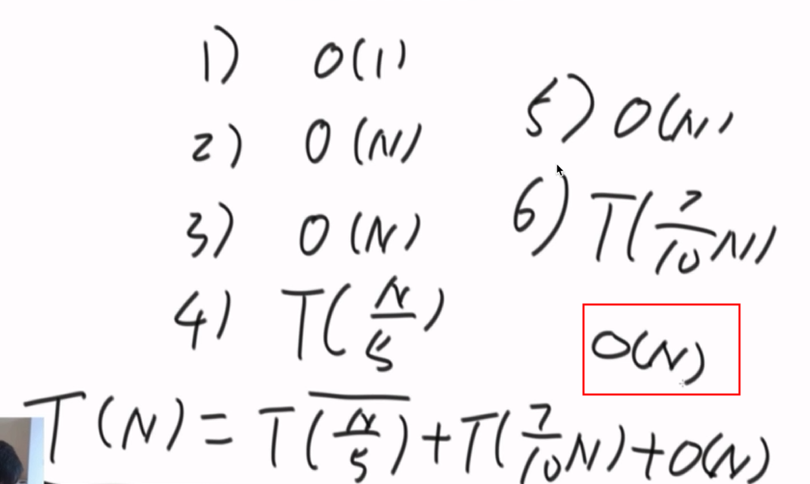 1) O(1)
2) O(N)
3) O(N)
4) T(N/5)
5) O(N)
6) T(7/10 N)
O(N)
T(N) = T(N/5) + T(7/10 N) + O(N)